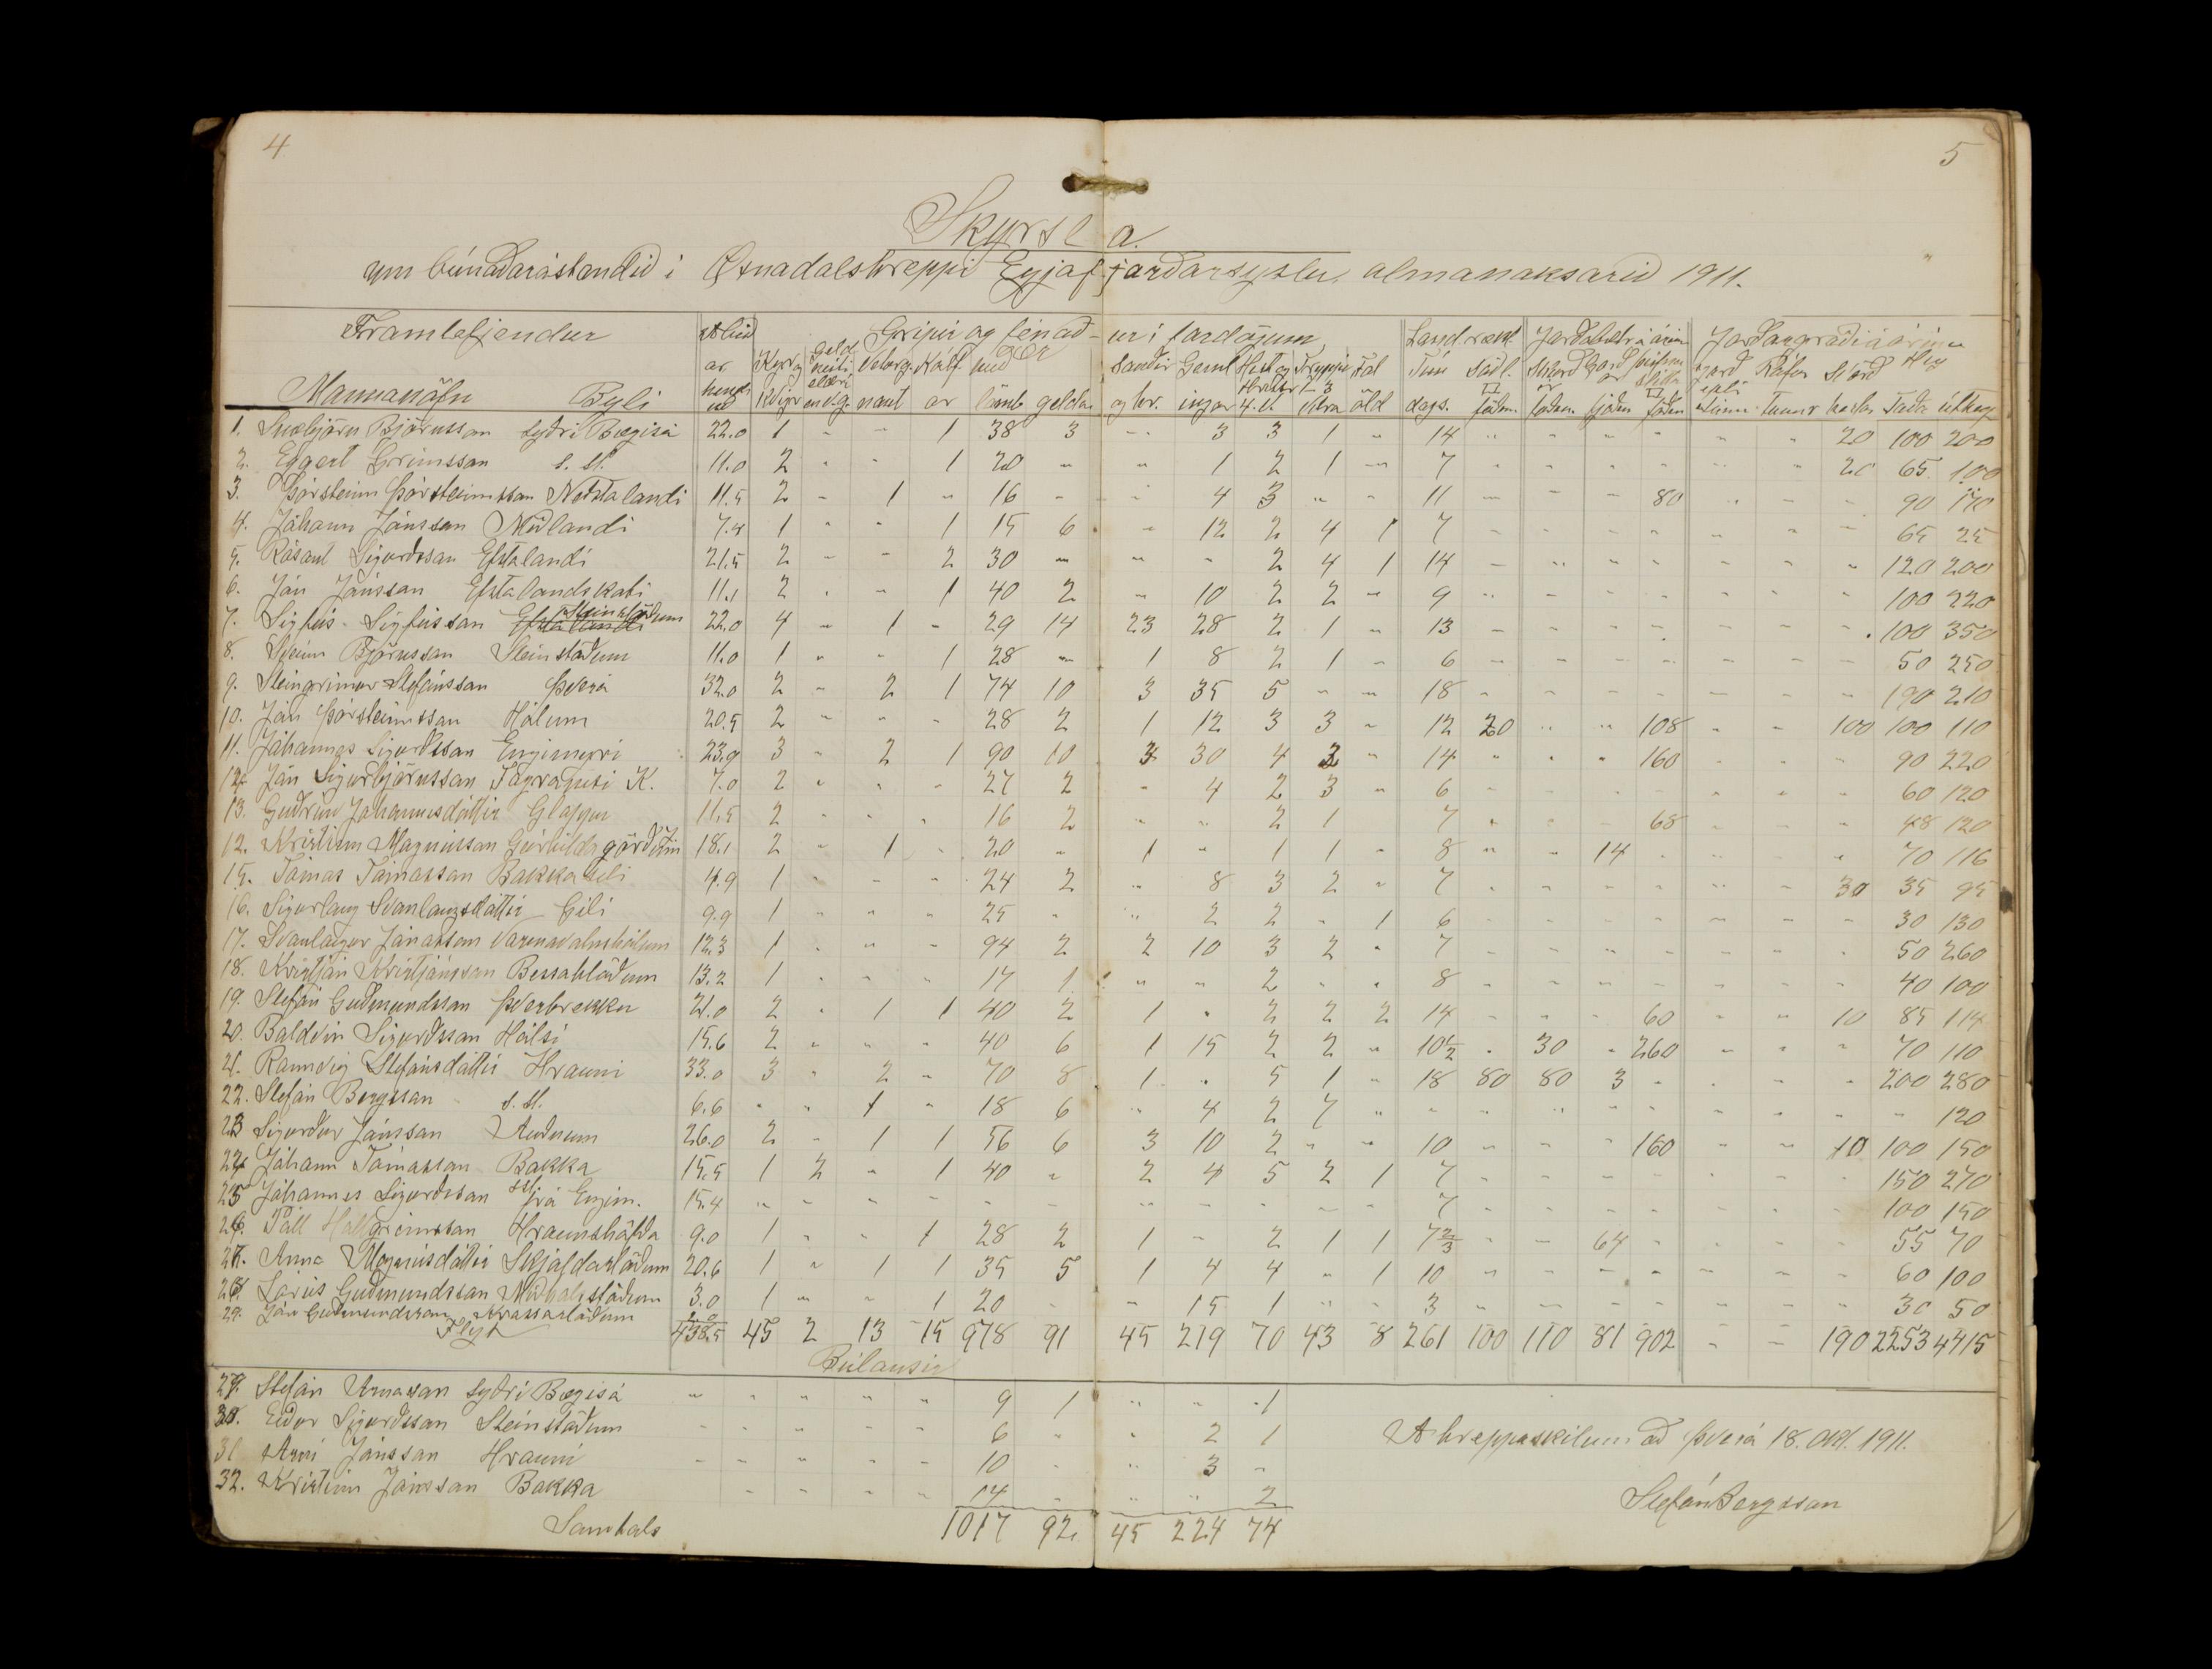 4
5
Skyrsla.
um búnaðarástandið i Öxnadalshreppi Eyjafjarðarsyslu, almanaksarið 1911.
Framteljendur Gripir og fénað- ur i fardögum, Landrækt Jarðabætr á árin Jarðargróði á árinu
Mannanöfn Byli
1. Snæbjörn Björnsson Syðri Bægisá 22.0 1 " " 1 38 3 " 3 3 1 " 14 " " " " " " 20 100 200
2. Eggert Grímsson s. st. 11.0 2 " " 1 20 " " 1 2 1 " 7 " " " " " " 20 65 100
3. Þorsteinn Þorsteinsson Neðstalandi 11.5 2 " 1 " 16 " " 4 3 " " 11 " " " 80 " " " 90 170
4. Jóhann Jónsson Miðlandi 7.4 1 " " 1 15 6 " 12 2 4 1 7 " " " " " " " 65 25
5. Rósant Sigurðsson Efstalandi 21.5 2 " " 2 30 " " " 2 4 1 14 " " " " " " " 120 200
6. Jón Jónsson Efstalandskoti 11.1 2 " " 1 40 2 " 10 2 2 " 9 " " " " " " " 100 220
7. Sigfús Sigfússon Efstalandi Steinstöðum 22.0 4 " 1 " 29 14 23 28 2 1 " 13 " " " " " " " 100 350
8. Steinn Björnsson Steinstöðum 11.0 1 " " 1 28 " 1 8 2 1 " 6 " " " " " " " 50 250
9. Steingrímur Stefánsson Þverá 32.0 2 " 2 1 74 10 3 35 5 " " 18 " " " " " " " 190 210
10. Jón Þorsteinsson Hólum 20.5 2 " " " 28 2 1 12 3 3 " 12 20 " " 108 " " 100 100 110
11. Jóhannes Sigurðsson Engimyri 23.9 3 " 2 1 90 10 3 30 4 3 " 14 " " " 160 " " " 90 220
12. Jón Sigurbjörnsson Fagranesi K. 7.0 2 " " " 27 2 " 4 2 3 " 6 " " " " " " " 60 120
13. Guðrún Jóhannesdóttir Glæsir 11.5 2 " " " 16 2 " " 2 1 7 " " " 68 " " " 48 120
12. Kristinn Magnússon Geirhildagörðum 18.1 2 " 1 " 20 " 1 " 1 1 " 8 " " 14 " " " " 70 116
15. Tómas Tómasson Bakkaseli 4.9 1 " " " 24 2 " 8 3 2 " 7 " " " " " " 30 35 95
16. Sigurlaug Svanlaugsdóttir Gili 9.9 1 " " " 25 " " 2 2 " 1 6 " " " " " " " 30 130
17. Svanlaugur Jónasson Varmavatnshólum 12.3 1 " " " 94 2 2 10 3 2 " 7 " " " " " " " 50 260
18. Kristján Kristjánsson Bessahlöðum 13.2 1 " " " 17 1 " " 2 " " 8 " " " " " " " 40 100
19. Stefán Guðmundsson Þverbrekku 21.0 2 " 1 1 40 2 1 " 2 2 2 14 " " " 60 " " 10 85 114
20. Baldvin Sigurðsson Hálsi 15.6 2 " " " 40 6 1 15 2 2 " 10½ " 30 " 260 " " " 70 110
21. Rannveig Stefánsdóttir Hrauni 33.0 3 " 2 " 70 8 1 " 5 1 " 18 80 80 3 " " " " 200 280
22. Stefán Bergsson s. st. 6.6 " " 1 " 18 6 " 4 2 7 " " " " " " " " " " 120
23 Sigurður Jónsson Auðnum 26.0 2 " 1 1 56 6 3 10 2 " " 10 " " " 160 " " 10 100 150
24 Jóhann Tómasson Bakka 15.5 1 2 " 1 40 " 2 4 5 2 1 7 " " " " " " " 150 270
25 Jóhannes Sigurðsson sst frá Engim. 15.4 " " " " " " " " " " " 7 " " " " " " " 100 150
26. Páll Hallgrímsson Hraunshöfða 9.0 1 " " 1 28 2 1 " 2 1 1 7⅔ " " 64 " " " " 55 70
27. Anna Magnúsdóttir Skjaldarstöðum 20.6 1 " 1 1 35 5 1 4 4 " 1 10 " " " " " " " 60 100
28. Lárus Guðmundsson Miðhálsstöðum 3.0 1 " " 1 20 " " 15 1 " " 3 " " " " " " " 30 50
29. Jón Guðmundsson Krossastöðum
Flyt 438.5 45 2 13 15 978 91 45 219 70 43 8 261 100 110 81 902 " " 190 2253 4415
Búlausir
29. Stefán Arnason Syðri Bægisá " " " " " 9 1 " " 1
30. Eiður Sigurðsson Steinstöðum " " " " " 6 " " 2 1
31 Arni Jónsson Hrauni " " " " " 10 " " 3 "
32. Kristinn Jónsson Bakka " " " " 14 " " " 2
Samtals 1017 92 45 224 74
A hreppaskilum að Þverá 18. Okt. 1911.
Stefán Bergsson